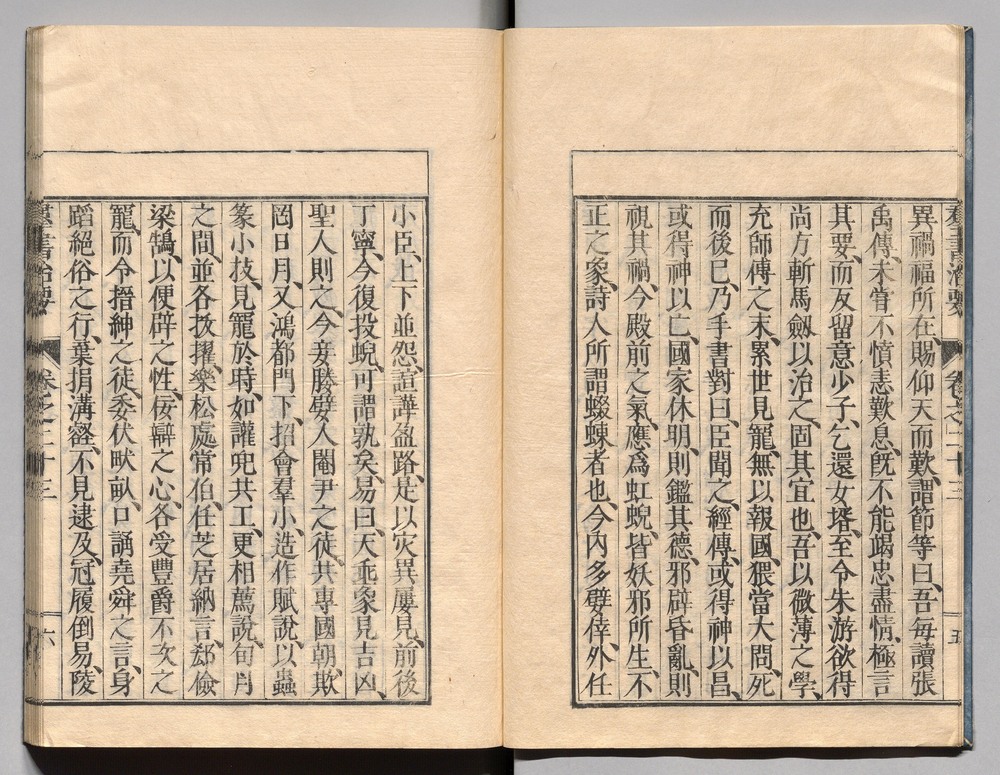 羣書治要 卷之二十三 五
異禍福所在賜仰天而歎、謂節等曰、吾每讀張
禹傳、未甞不憤恚歎息、旣不能竭忠盡情、極言
其要、而反留意少子、乞還女壻、至令朱游欲得
尚方斬馬劒以治之、固其宜也、吾以微薄之學、
充師傅之末、累世見寵、無以報國、猥當大問、死
而後已、乃手書對曰、臣聞之、經傳、或得神以昌、
或得神以亡、國家休明、則鑑其德、邪辟昏亂、則
視其禍、今殿前之氣、應爲虹蜺、皆妖邪所生、不
正之象、詩人所謂蝃蝀者也、今內多嬖倖、外任
小臣、上下並怨、諠譁盈路、是以灾異屢見、前後
丁寧、今復投蜺、可謂孰矣、易曰、天垂象見吉凶、
聖人則之、今妾媵嬖人閹尹之徒、共專國朝、欺
罔日月、又鴻都門下、招會羣小、造作賦說、以蟲
篆小技、見寵於時、如讙兜共工、更相薦說、旬月
之間、並各拔擢、樂松處常伯、任芝居納言、郄儉
梁鵠、以便辟之性、佞辯之心、各受豐爵不次之
寵、而令搢紳之徒、委伏畎畝、口誦堯舜之言、身
蹈絕俗之行、棄捐溝壑、不見逮及、冠履倒易、陵
羣書治要 卷之二十三 六